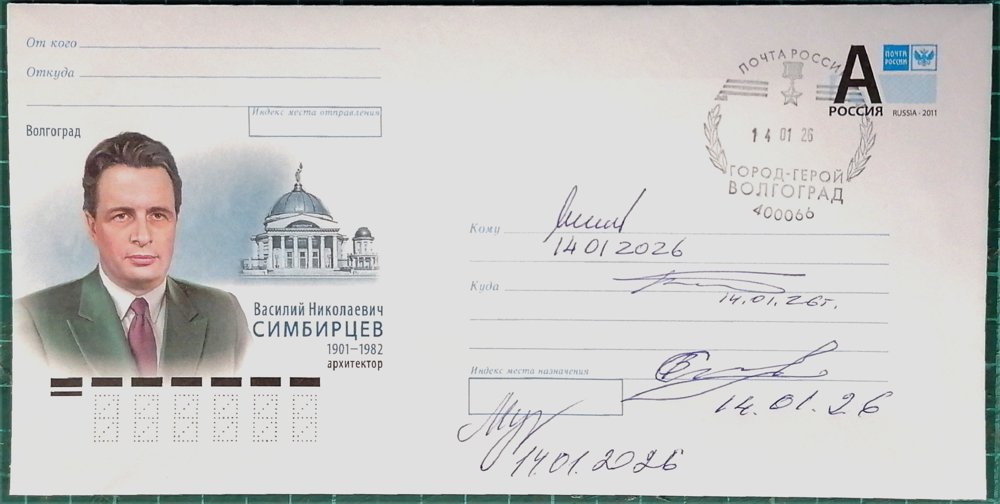 От кого
Откуда
Индекс места отправления
Волгоград
Василий Николаевич
СИМБИРЦЕВ
1901–1982
архитектор
ПОЧТА РОССИИ
14 01 26
ГОРОД-ГЕРОЙ
ВОЛГОГРАД
400066
ПОЧТА
РОССИИ
А
РОССИЯ
RUSSIA - 2011
Кому
14 01 2026
Куда
14.01.26г.
Индекс места назначения
14.01.26
14.01.2026